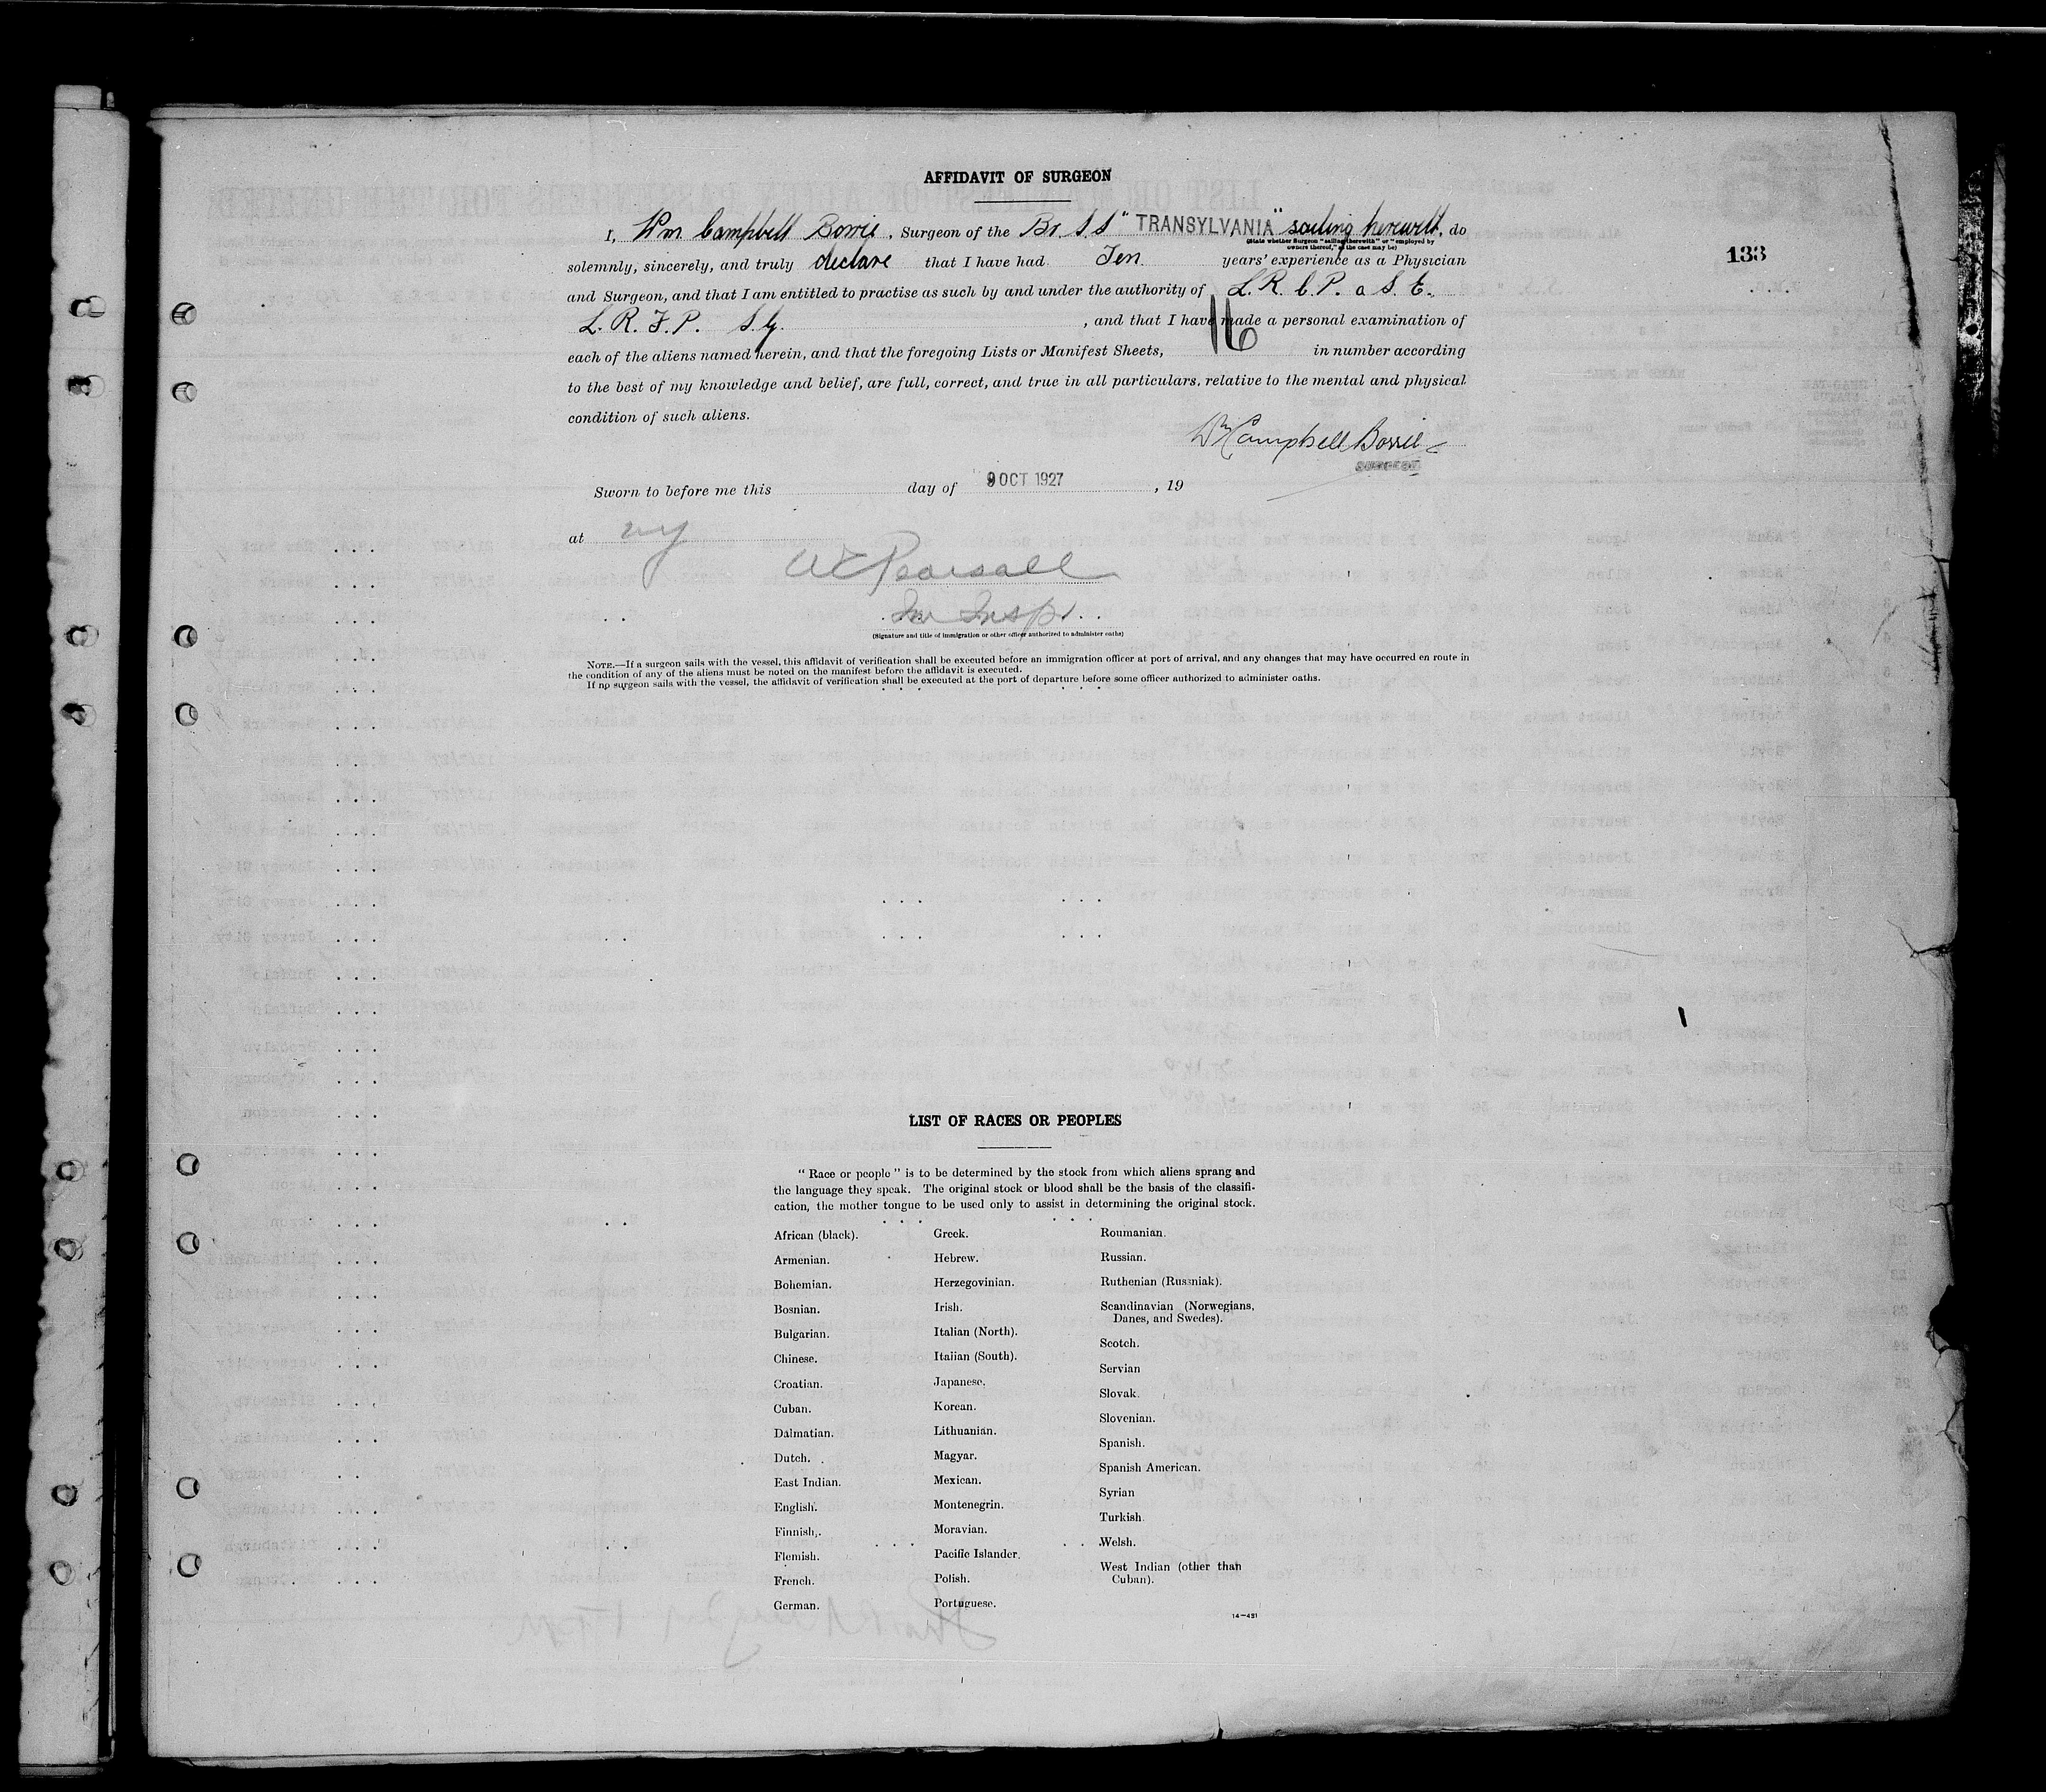 AFFIDAVIT OF SURGEON
I, Wm Campbell Borrie, Surgeon of the Br. S.S "TRANSYLVANIA" sailing herewith, do
(State whether Surgeon "sailing therewith" or "employed by
owners thereof," as the case may be)
133
solemnly, sincerely, and truly declare that I have had Ten years' experience as a Physician
and Surgeon, and that I am entitled to practise as such by and under the authority of L. R. C. P. & S. E.,
L. R. F. P. S. G. , and that I have made a personal examination of
each of the aliens named herein, and that the foregoing Lists or Manifest Sheets, 16 in number according
to the best of my knowledge and belief, are full, correct, and true in all particulars, relative to the mental and physical
condition of such aliens.
Wm Campbell Borrie
SURGEON
Sworn to before me this day of 9 OCT 1927, 19
at NY
W E Pearsall
Im Inspr.
(Signature and title of immigration or other officer authorized to administer oaths)
NOTE.—If a surgeon sails with the vessel, this affidavit of verification shall be executed before an immigration officer at port of arrival, and any changes that may have occurred en route in
the condition of any of the aliens must be noted on the manifest before the affidavit is executed.
If no surgeon sails with the vessel, the affidavit of verification shall be executed at the port of departure before some officer authorized to administer oaths.
LIST OF RACES OR PEOPLES
"Race or people" is to be determined by the stock from which aliens sprang and
the language they speak. The original stock or blood shall be the basis of the classifi-
cation, the mother tongue to be used only to assist in determining the original stock.
African (black).
Armenian.
Bohemian.
Bosnian.
Bulgarian.
Chinese.
Croatian.
Cuban.
Dalmatian.
Dutch.
East Indian.
English.
Finnish.
Flemish.
French.
German.
Greek.
Hebrew.
Herzegovinian.
Irish.
Italian (North).
Italian (South).
Japanese.
Korean.
Lithuanian.
Magyar.
Mexican.
Montenegrin.
Moravian.
Pacific Islander.
Polish.
Portuguese.
Roumanian.
Russian.
Ruthenian (Russniak).
Scandinavian (Norwegians,
Danes, and Swedes).
Scotch.
Servian
Slovak.
Slovenian.
Spanish.
Spanish American.
Syrian
Turkish.
Welsh.
West Indian (other than
Cuban).
14—451